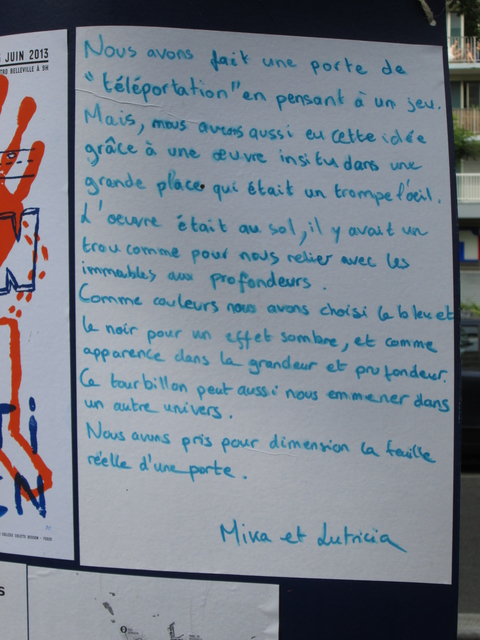 JUIN 2013
TRO BELLEVILLE À 9H
Nous avons fait une porte de
"téléportation" en pensant à un jeu.
Mais, nous avons aussi eu cette idée
grâce à une œuvre insitu dans une
grande place qui était un trompe l'oeil.
L'oeuvre était au sol, il y avait un
trou comme pour nous relier avec les
immables aux profondeurs.
Comme couleurs nous avons choisi le bleu et
le noir pour un effet sombre, et comme
apparence dans la grandeur et profondeur.
Ce tourbillon peut aussi nous emmener dans
un autre univers.
Nous avons pris pour dimension la feuille
réelle d'une porte.
Mika et Lutricia